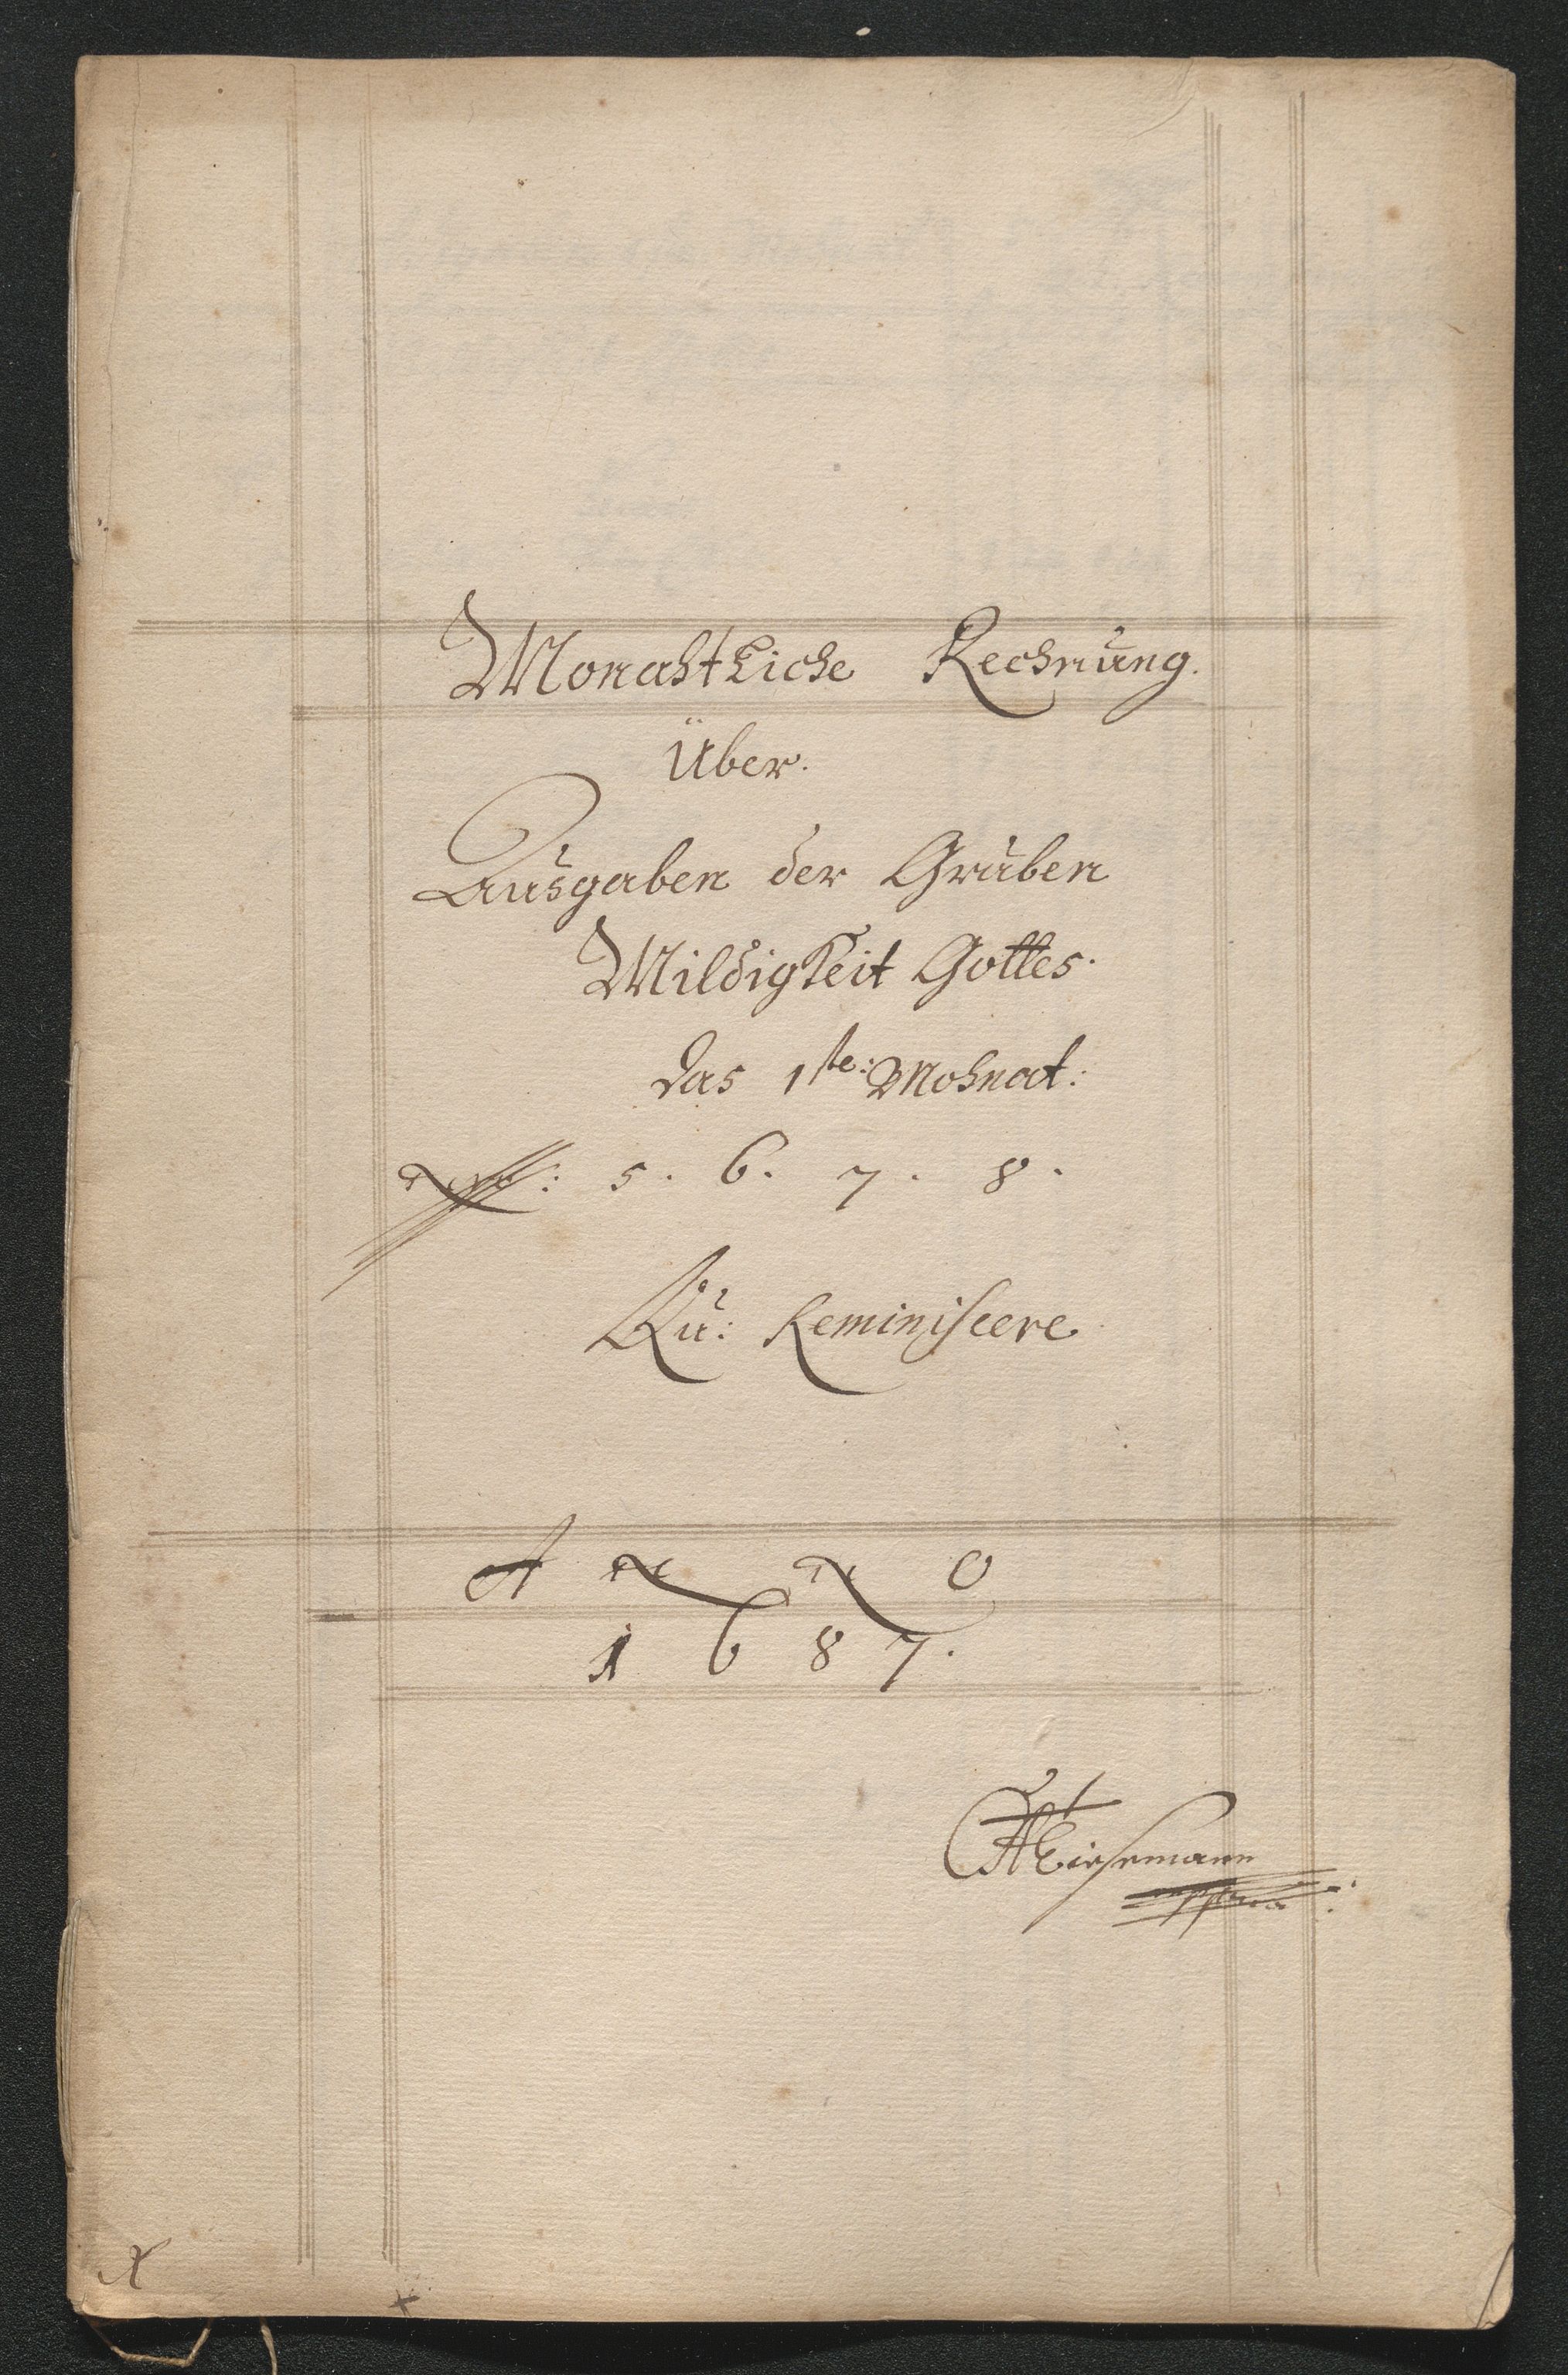 Monahtliche Rechnung.
Über.
Ausgaben der Gruben
Mildigkeit Gottes.
das 1ste: Mohnat:
No: 5. 6. 7. 8.
Qu: Reminiscere
A N N O
1687.
mppria